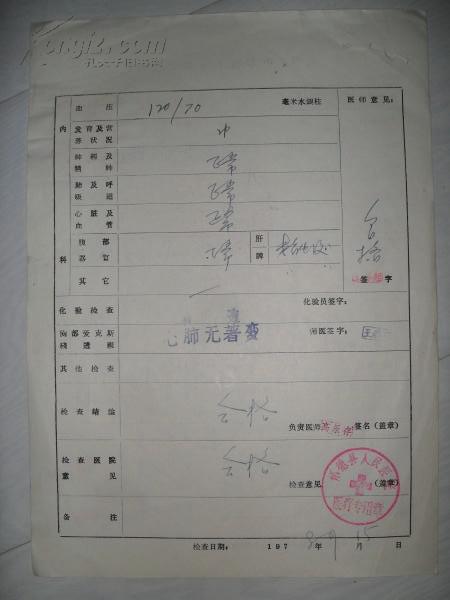 血压 120/70 毫米水銀柱 医师意见:
内科
发育及营养状况 中
神经及精神 正常
肺及呼吸道 正常
心脏及血管 正常
腹部器官 正常 肝脾
其它
合格
签字
化验检查 化验员签字:
胸部爱克斯 心肺无著变 师医签字:
其他检查
检查结論 合格 负责医师 签名(盖章)
检查医院意见 合格 检查意见 (盖章)
县人民医院
医疗专用章
备注
检查日期: 1978年 月15日